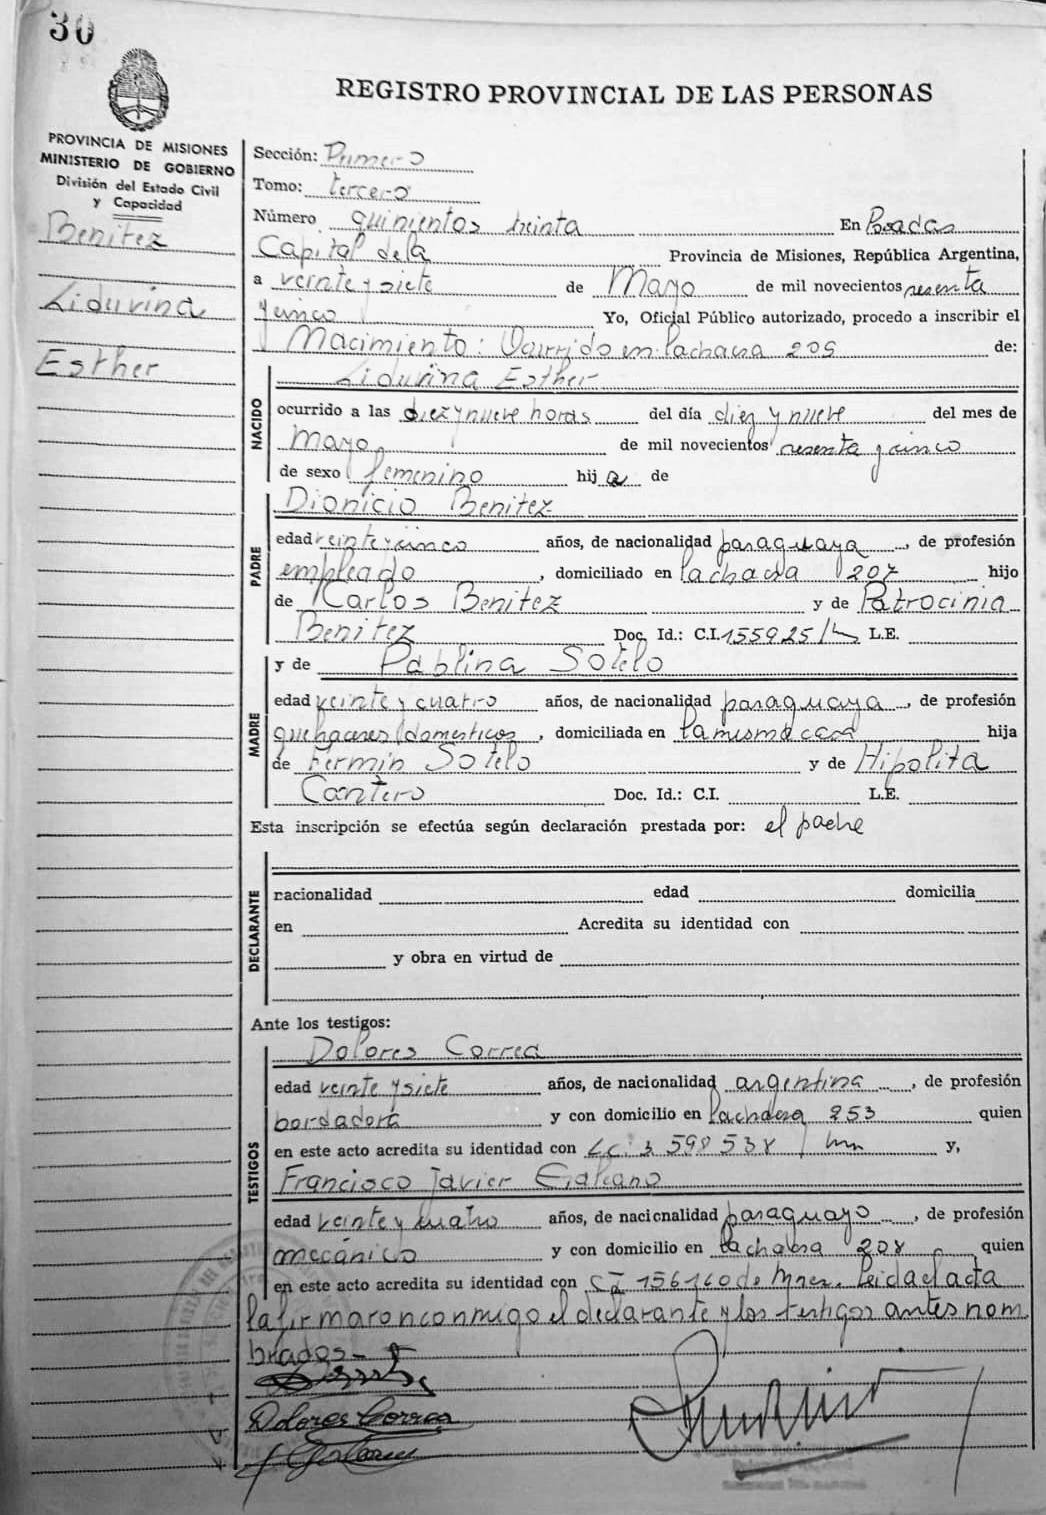 30
REGISTRO PROVINCIAL DE LAS PERSONAS
PROVINCIA DE MISIONES
MINISTERIO DE GOBIERNO
División del Estado Civil
y Capacidad
Benitez
Liduvina
Esther
Sección: Primero
Tomo: tercero
Número quinientos treinta En Posadas
Capital de la Provincia de Misiones, República Argentina,
a veinte y siete de Mayo de mil novecientos sesenta
y cinco Yo, Oficial Público autorizado, procedo a inscribir el
Nacimiento: Ocurrido en: la chacra 205 de:
NACIDO
Liduvina Esther
ocurrido a las diez y nueve horas del día diez y nueve del mes de
Mayo de mil novecientos sesenta y cinco
de sexo femenino hij a de
PADRE
Dionicio Benitez
edad veinte y cinco años, de nacionalidad paraguaya, de profesión
empleado, domiciliado en la chacra 207 hijo
de Karlos Benitez y de Patrocinia
Benitez Doc. Id.: C.I. 155925 L.E.
MADRE
y de Pablina Sotelo
edad veinte y cuatro años, de nacionalidad paraguaya, de profesión
quehaceres domesticos, domiciliada en la misma casa hija
de Fermin Sotelo y de Hipolita
Cantero Doc. Id.: C.I. L.E.
Esta inscripción se efectúa según declaración prestada por: el padre
DECLARANTE
nacionalidad edad domicilia
en Acredita su identidad con
y obra en virtud de
Ante los testigos:
TESTIGOS
Dolores Correa
edad veinte y siete años, de nacionalidad argentina, de profesión
bordadora y con domicilio en la chacra 253 quien
en este acto acredita su identidad con L.C. 3 598 538 y,
Francisco Javier Galeano
edad veinte y cuatro años, de nacionalidad paraguayo, de profesión
mecánico y con domicilio en la chacra 208 quien
en este acto acredita su identidad con C.I 156140 de Mnes. Leida el acta
la firmaron conmigo el declarante y los testigos antes nom
brados-
Dolores Correa